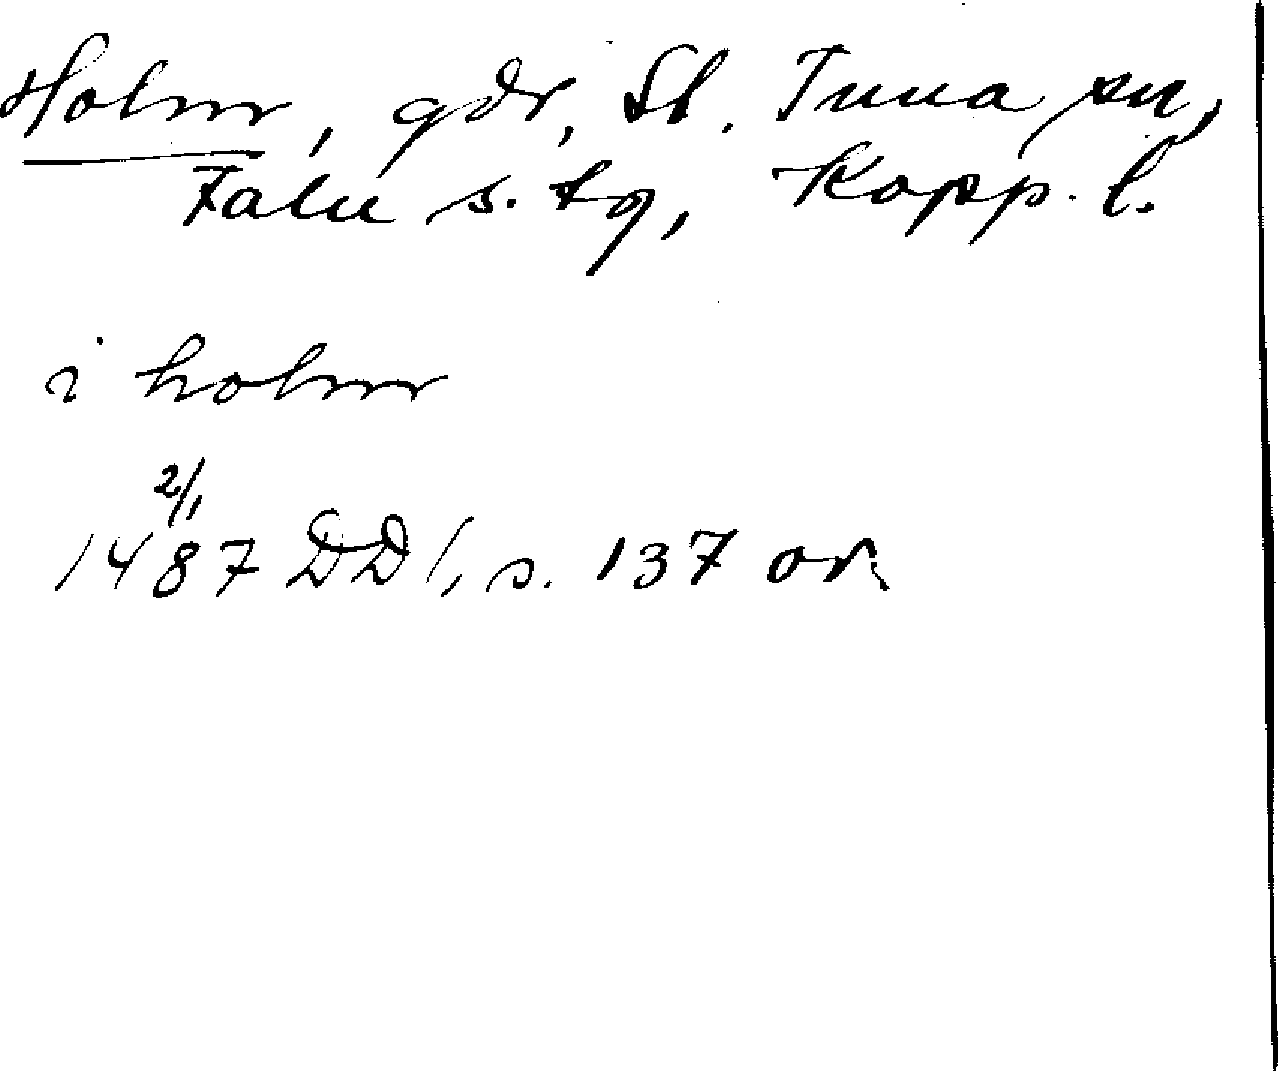 Holm, gdr, St. Tuna sn,
Falu s. tg, Kopp. l.
i holm
2/1
1487 DD 1, s. 137 or.